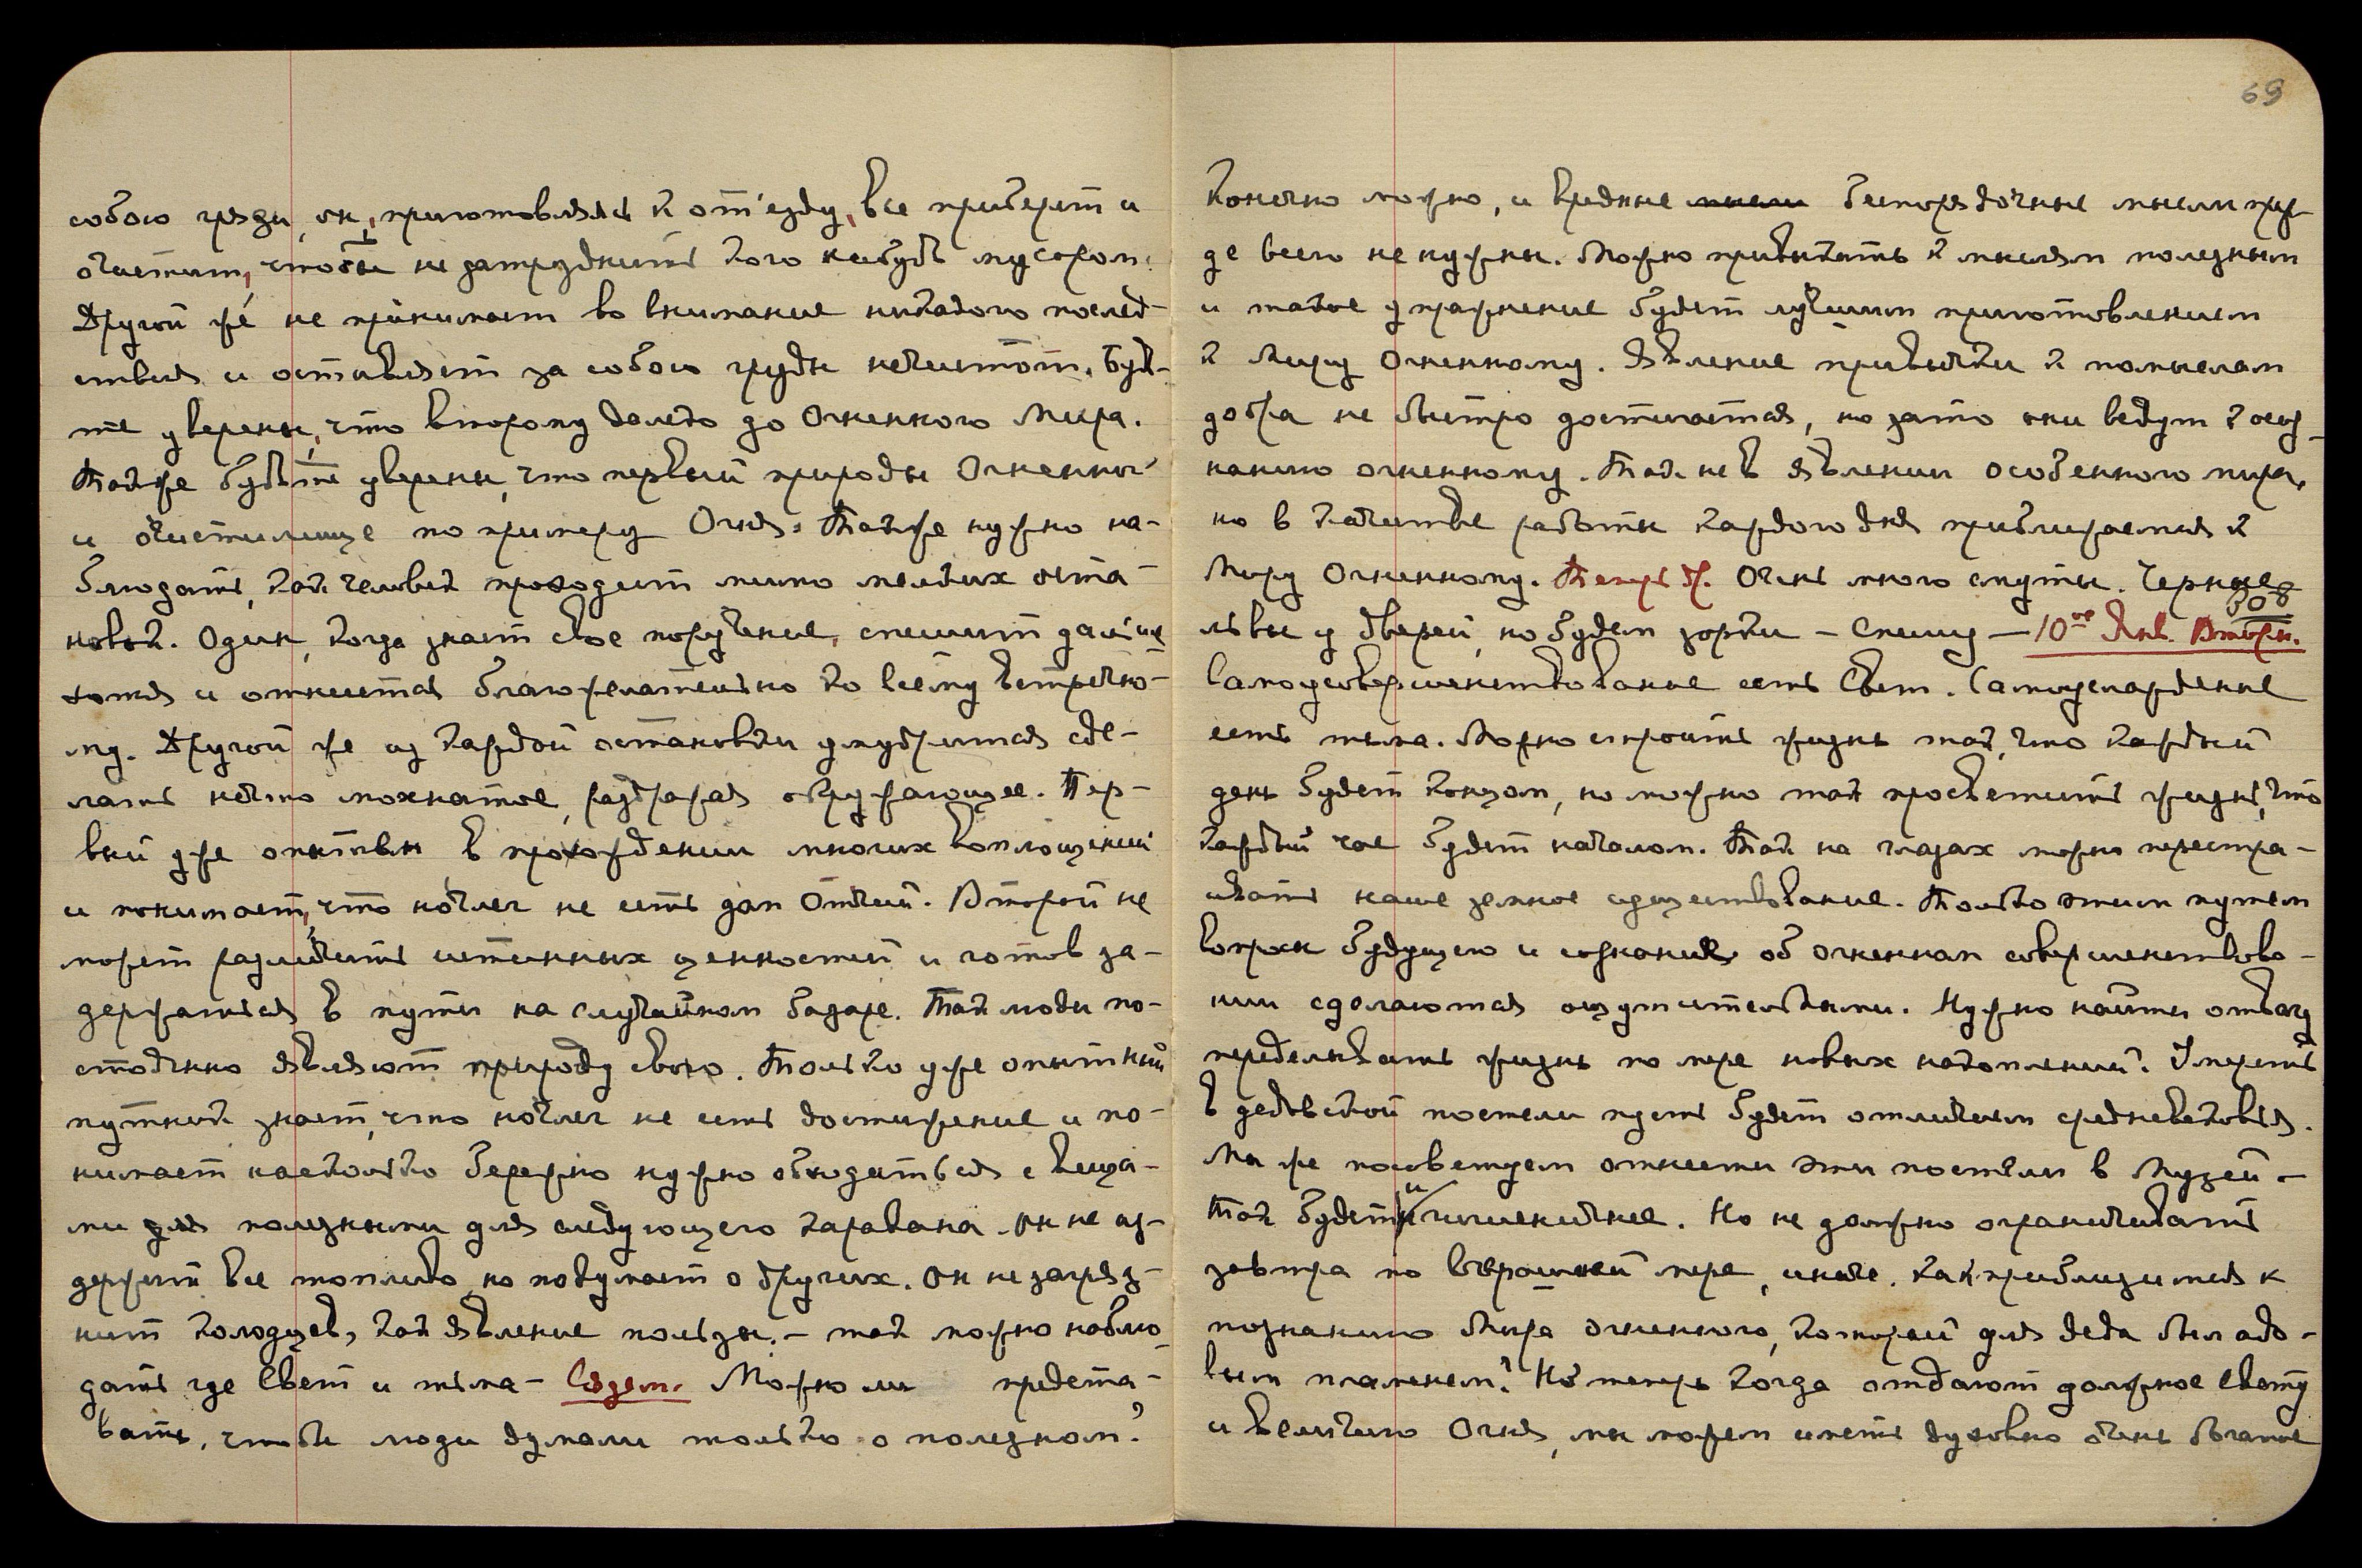 собою грязи, он, приготовляясь к от'езду, все приберет и
очистит, чтобы не затруднить кого нибудь мусором.
Другой же не принимает во внимание никакого послед-
ствия и оставляет за собою груды нечистот. Будь-
те уверены, что второму далеко до Огненного Мира.
Также будьте уверены, что первый природы Огненной
и очистилище по примеру Огня. Также нужно на-
блюдать, как человек проходит мимо мелких оста-
новок. Один, когда знает свое поручение, спешит дальше
хотя и отнесется благожелательно ко всему встречно-
му. Другой же из каждой остановки умудрится сде-
лать нечто мохнатое, раздражая окружающее. Пер-
вый уже опытен в прохождении многих воплощений
и понимает, что ночлег не есть дом Отчий. Второй не
может различить истинных ценностей и готов за-
держаться в пути на случайном базаре. Так люди по-
стоянно являют природу свою. Только уже опытный
путник знает, что ночлег не есть достижение и по-
нимает насколько бережно нужно обходиться с веща-
ми полезными для следующего каравана. Он не из-
держит все топливо, но подумает о других. Он не загряз-
нит колодцев, как явление пользы. – так можно наблю-
дать где Свет и тьма – Сядем. Можно ли предста-
вить, чтобы люди думали только о полезном?
Конечно можно, и вредные беспорядочные мысли преж-
де всего не нужны. Можно привыкать к мыслям полезным
и такое упражнение будет лучшим приготовлением
к Миру Огненному. Явление привычки к помыслам
добра не быстро достигается, но зато они ведут к осоз-
нанию огненному. Так не в явлении особенного мира,
но в качестве работы каждого дня приближаемся к
Миру Огненному. Очень много смуты. Черные
308
львы у дверей, но будем зорки – Спешу – 10ое Янв. Вторн.
Самоусовершенствование есть Свет. Самоуслаждение
есть тьма. Можно строить жизнь так, что каждый
день будет концом, но можно так просветить жизнь, что
каждый час будет началом. Так на глазах можно перестра-
ивать наше земное существование. Только этим путем
вопросы будущего и сознания об огненном совершенствова-
нии сделаются ощутительными. Нужно найти отвагу
переделывать жизнь по мере новых накоплений. Умереть
в дедовской постели пусть будет отличием средневековья.
Мы же посоветуем отнести эти постели в Музей –
так будет и гигиеничнее. Но не должно ограничивать
завтра по вчерашней мере, иначе, как приблизиться к
познанию Мира Огненного, который для деда был адо-
вым пламенем? Но теперь когда отдают должное Свету
и величию Огня, мы можем иметь духовно очень богатое
69